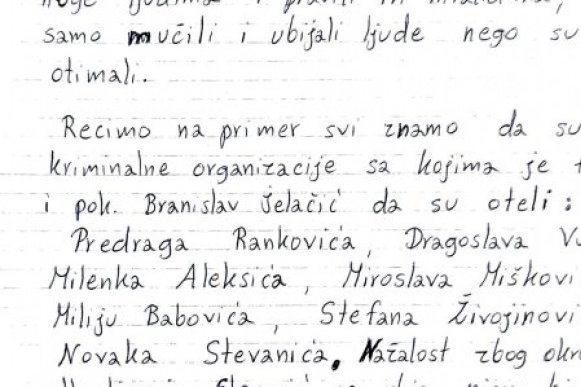 samo mučili i ubijali ljude nego su
otimali.
Recimo na primer svi znamo da su
kriminalne organizacije sa kojima je
i pok. Branislav Šelačić da su oteli:
Predraga Rankovića, Dragoslava
Milenka Aleksića, Miroslava Miškovi
Miliju Babovića, Stefana Živojinovi
Novaka Stevanića. Nažalost zbog okr